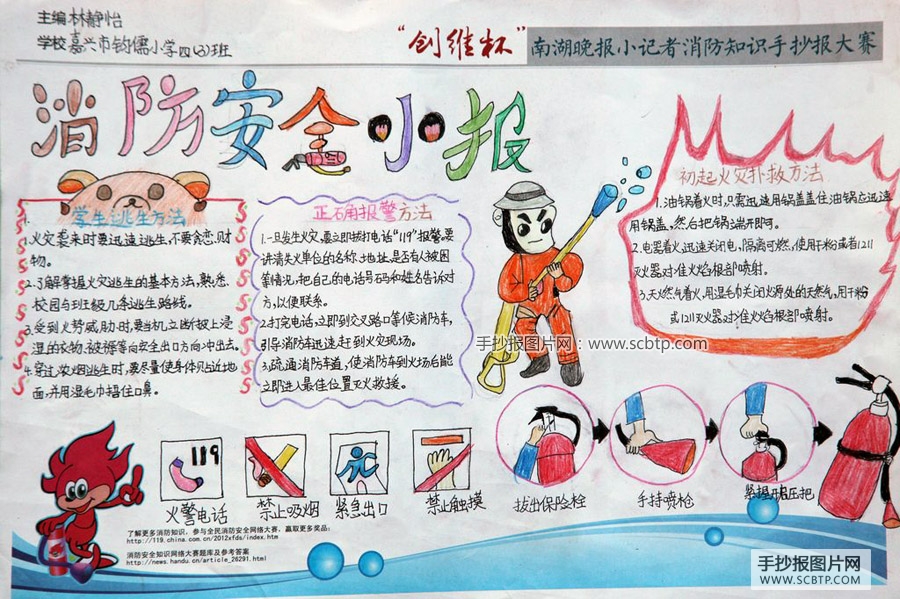 主编林静怡
学校嘉兴市钧儒小学四(3)班
“创维杯”南湖晚报小记者消防知识手抄报大赛
消防安全小报
学生逃生方法
1.火灾袭来时要迅速逃生,不要贪恋财
物。
2.了解掌握火灾逃生的基本方法,熟悉
校园与班级几条逃生路线。
3.受到火势威胁时,要当机立断披上浸
湿的衣物、被褥等向安全出口方向冲出去。
4.穿过浓烟逃生时,要尽量使身体贴近地
面,并用湿毛巾捂住口鼻。
正确报警方法
1.一旦发生火灾,要立即拨打电话“119”报警。要
讲清失火单位的名称、地址,是否有人被困
等情况,把自己的电话号码和姓名告诉对
方,以便联系。
2.打完电话,立即到交叉路口等候消防车,
引导消防车迅速赶到火灾现场。
3.疏通消防车道,使消防车到火场后能
立即进入最佳位置灭火救援。
初起火灾扑救方法
1.油锅着火时,只需迅速用锅盖盖住油锅应迅速
用锅盖,然后把锅端开即可。
2.电器着火,迅速关闭电,隔离可燃,使用干粉或者1211
灭火器对准火焰根部喷射。
3.天然气着火,用湿毛巾关闭火源处的天然气,用干粉
或1211灭火器对准火焰根部喷射。
手抄报图片网:www.scbtp.com
119
火警电话
禁止吸烟
紧急出口
禁止触摸
拔出保险栓
手持喷枪
紧握压把
了解更多消防知识,参与全民消防安全网络大赛,赢取更多奖品:
http://119.china.com.cn/2012xfds/index.htm
消防安全知识网络大赛题库及参考答案
http://news.handu.cn/article_26291.html
手抄报图片网
WWW.SCBTP.COM